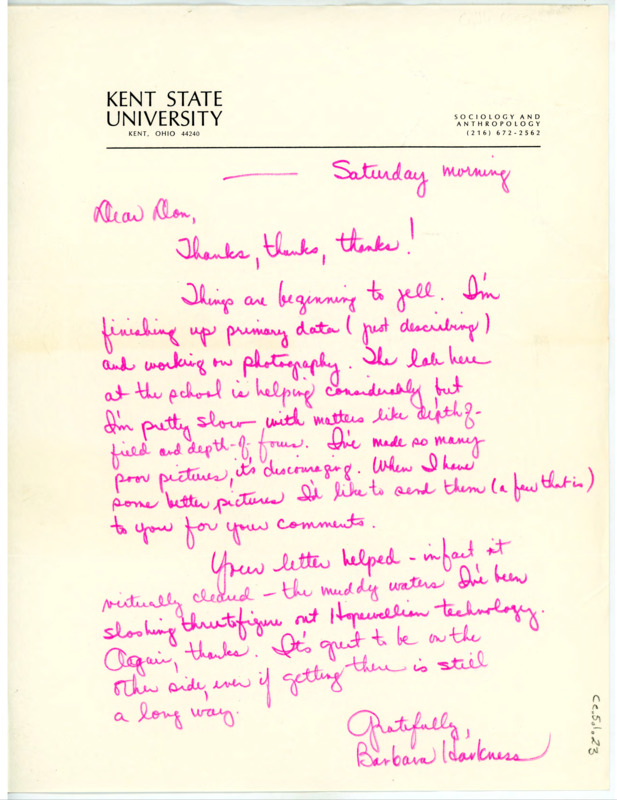 KENT STATE
UNIVERSITY
KENT, OHIO 44240
SOCIOLOGY AND
ANTHROPOLOGY
(216) 672-2562
Saturday morning
Dear Don,
Thanks, thanks, thanks!
Things are beginning to jell. I'm
finishing up primary data (just describing)
and working on photography. The lab here
at the school is helping considerably but
I'm pretty slow with matters like depth-of-
field and depth-of-focus. I've made so many
poor pictures, it's discouraging. When I have
some better pictures I'd like to send them (a few that is)
to you for your comments.
Your letter helped - in fact it
virtually cleared - the muddy waters I've been
sloshing thru to figure out Hopewellian technology.
Again, thanks. It's great to be on the
other side, even if getting there is still
a long way.
Gratefully,
Barbara Harkness